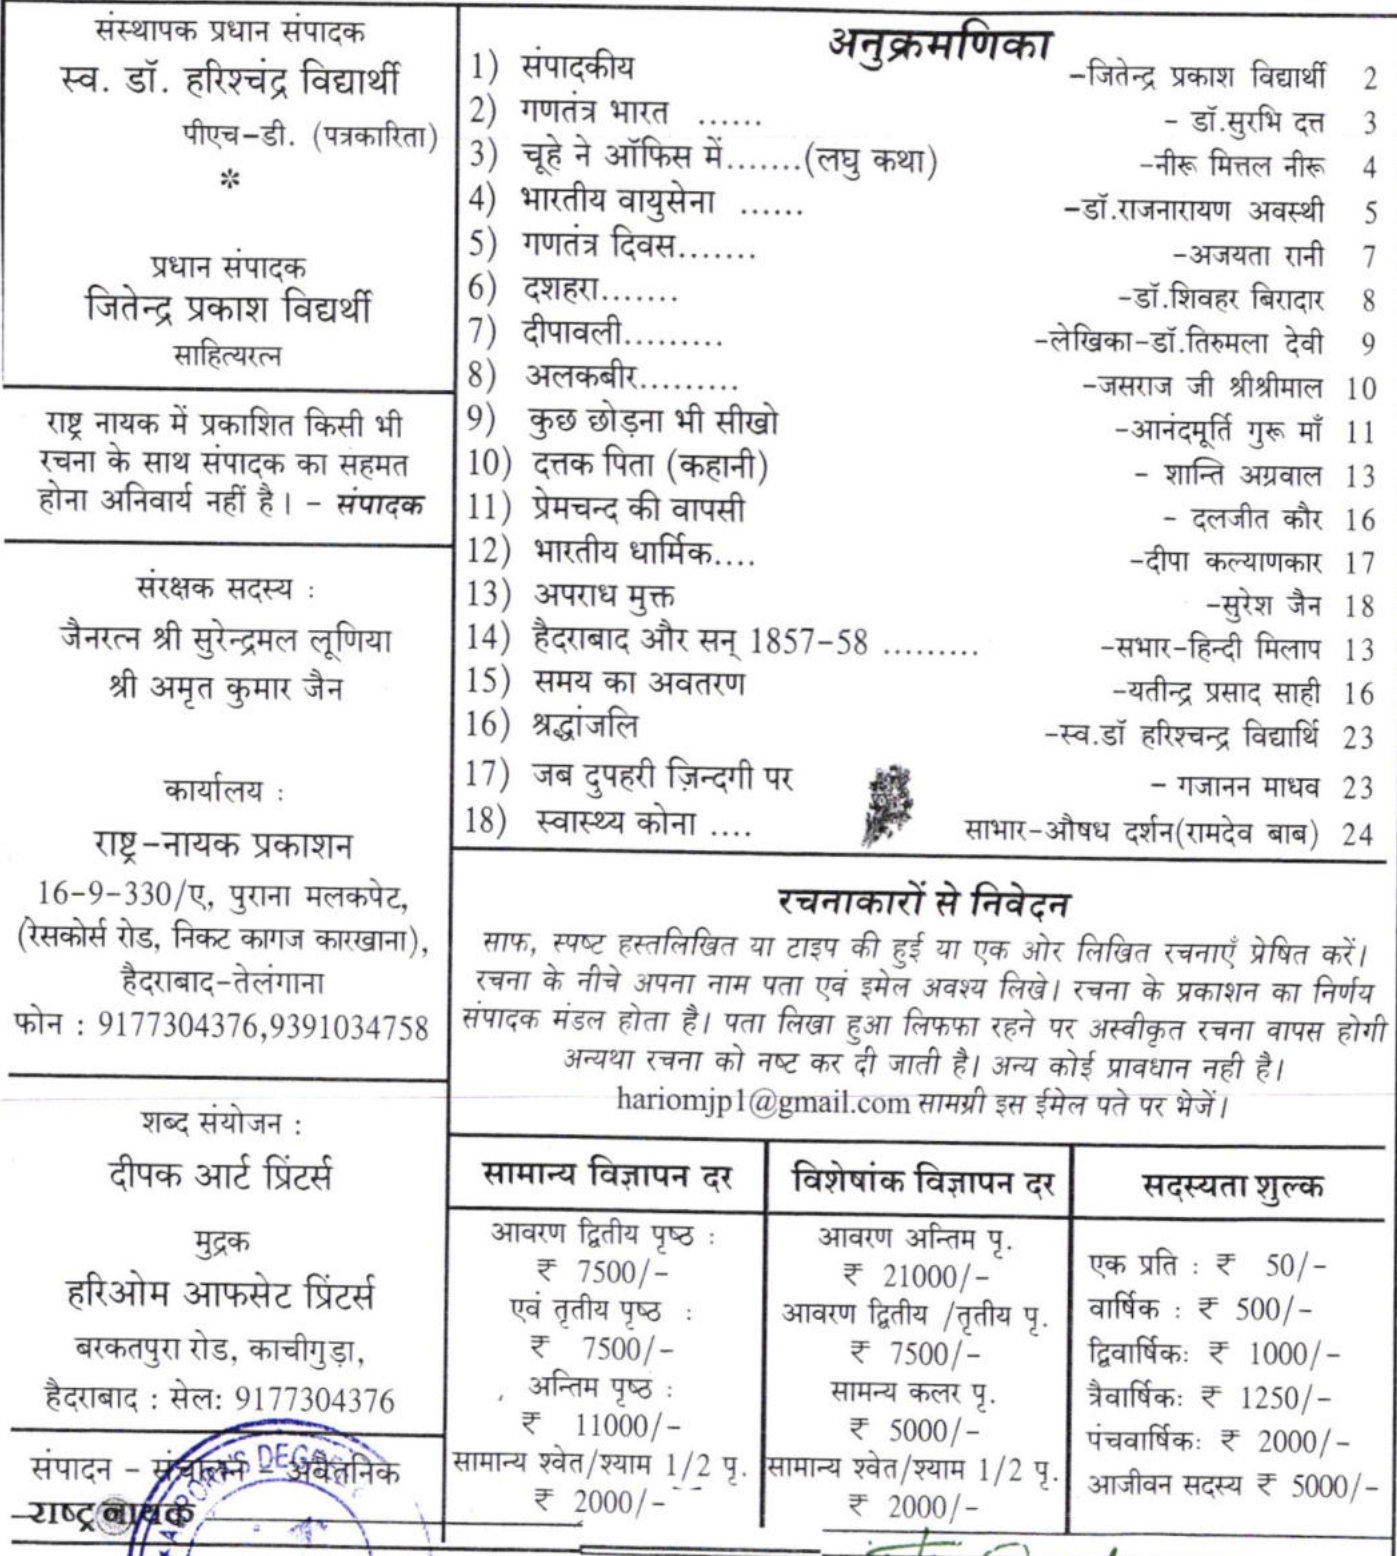 संस्थापक प्रधान संपादक
स्व. डॉ. हरिश्चंद्र विद्यार्थी
पीएच-डी. (पत्रकारिता)
*
प्रधान संपादक
जितेन्द्र प्रकाश विद्यर्थी
साहित्यरत्न
राष्ट्र नायक में प्रकाशित किसी भी
रचना के साथ संपादक का सहमत
होना अनिवार्य नहीं है। - संपादक
संरक्षक सदस्य :
जैनरत्न श्री सुरेन्द्रमल लूणिया
श्री अमृत कुमार जैन
कार्यालय :
राष्ट्र-नायक प्रकाशन
16-9-330/ए, पुराना मलकपेट,
(रेसकोर्स रोड, निकट कागज कारखाना),
हैदराबाद-तेलंगाना
फोन : 9177304376,9391034758
शब्द संयोजन :
दीपक आर्ट प्रिंटर्स
मुद्रक
हरिओम आफसेट प्रिंटर्स
बरकतपुरा रोड, काचीगुड़ा,
हैदराबाद : सेल: 9177304376
संपादन - संचालन - अवैतनिक
राष्ट्र नायक
DEGREE
अनुक्रमणिका
1) संपादकीय -जितेन्द्र प्रकाश विद्यार्थी 2
2) गणतंत्र भारत ...... - डॉ.सुरभि दत्त 3
3) चूहे ने ऑफिस में.......(लघु कथा) -नीरू मित्तल नीरू 4
4) भारतीय वायुसेना ...... -डॉ.राजनारायण अवस्थी 5
5) गणतंत्र दिवस....... -अजयता रानी 7
6) दशहरा....... -डॉ.शिवहर बिरादार 8
7) दीपावली......... -लेखिका-डॉ.तिरुमला देवी 9
8) अलकबीर......... -जसराज जी श्रीश्रीमाल 10
9) कुछ छोड़ना भी सीखो -आनंदमूर्ति गुरू माँ 11
10) दत्तक पिता (कहानी) - शान्ति अग्रवाल 13
11) प्रेमचन्द की वापसी - दलजीत कौर 16
12) भारतीय धार्मिक.... -दीपा कल्याणकार 17
13) अपराध मुक्त -सुरेश जैन 18
14) हैदराबाद और सन् 1857-58 ......... -सभार-हिन्दी मिलाप 13
15) समय का अवतरण -यतीन्द्र प्रसाद साही 16
16) श्रद्धांजलि -स्व.डॉ हरिश्चन्द्र विद्यार्थि 23
17) जब दुपहरी ज़िन्दगी पर - गजानन माधव 23
18) स्वास्थ्य कोना .... साभार-औषध दर्शन(रामदेव बाब) 24
रचनाकारों से निवेदन
साफ, स्पष्ट हस्तलिखित या टाइप की हुई या एक ओर लिखित रचनाएँ प्रेषित करें।
रचना के नीचे अपना नाम पता एवं इमेल अवश्य लिखे। रचना के प्रकाशन का निर्णय
संपादक मंडल होता है। पता लिखा हुआ लिफफा रहने पर अस्वीकृत रचना वापस होगी
अन्यथा रचना को नष्ट कर दी जाती है। अन्य कोई प्रावधान नही है।
hariomjp1@gmail.com सामग्री इस ईमेल पते पर भेजें।
सामान्य विज्ञापन दर
आवरण द्वितीय पृष्ठ :
₹ 7500/-
एवं तृतीय पृष्ठ :
₹ 7500/-
अन्तिम पृष्ठ :
₹ 11000/-
सामान्य श्वेत/श्याम 1/2 पृ.
₹ 2000/-
विशेषांक विज्ञापन दर
आवरण अन्तिम पृ.
₹ 21000/-
आवरण द्वितीय /तृतीय पृ.
₹ 7500/-
सामन्य कलर पृ.
₹ 5000/-
सामान्य श्वेत/श्याम 1/2 पृ.
₹ 2000/-
सदस्यता शुल्क
एक प्रति : ₹ 50/-
वार्षिक : ₹ 500/-
द्विवार्षिकः ₹ 1000/-
त्रैवार्षिकः ₹ 1250/-
पंचवार्षिकः ₹ 2000/-
आजीवन सदस्य ₹ 5000/-